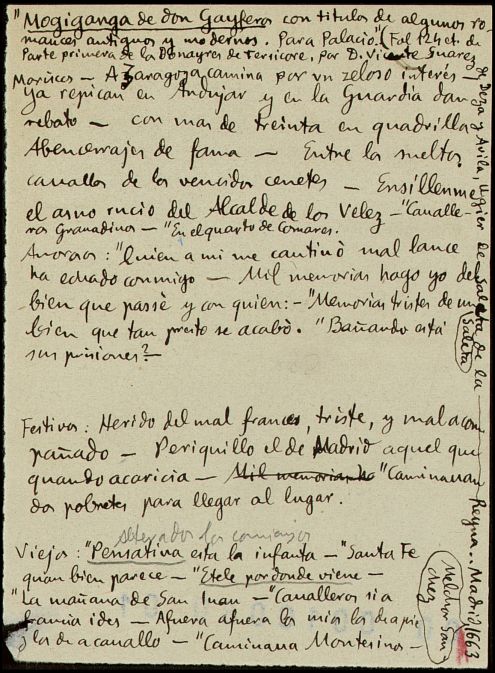 "Mogiganga de don Gayferos con titulos de algunos ro-
mances antiguos y modernos. Para Palacio". (Fol 124 et. de
Parte primera de los Donayres de Tersicore, por D. Vicente Suarez
Moriscos — A Zaragoza camina por un zeloso interés —
Ya repican en Andujar y en la Guardia dan
rebato — con mas de treinta en quadrilla
Abencerrajes de fama — Entre los sueltos
cauallos de los vencidos cenetes — Ensíllenme
el asno rucio del Alcalde de los Velez — "Caualle-
ros Granadinos — "En el quarto de Comares.
Amorosos: "Quien a mi me cautivò mal lance
ha echado conmigo — Mil memorias hago yo del
bien que passè y con quien: — "Memorias tristes de un
bien que tan presto se acabò. "Bañando está
sus prisiones? —
Festivos: Herido del mal frances, triste, y mal acom-
pañado — Periquillo el de Madrid aquel que
quando acaricia — Mil memorias ha "Caminauan
dos pobretes para llegar al lugar.
Viejos: "Pensativa esta la infanta — "Santa Fe
quan bien parece — "Etele por donde viene —
"La mañana de San Iuan — "Caualleros si a
francia ides — Afuera afuera los mios los de a pie
y los de a cauallo — "Caminaua Montesinos —
de Deza y Avila, Ugier de Saleta de la Reyna.. Madrid, 1663
Saleta
Melchor San-
chez